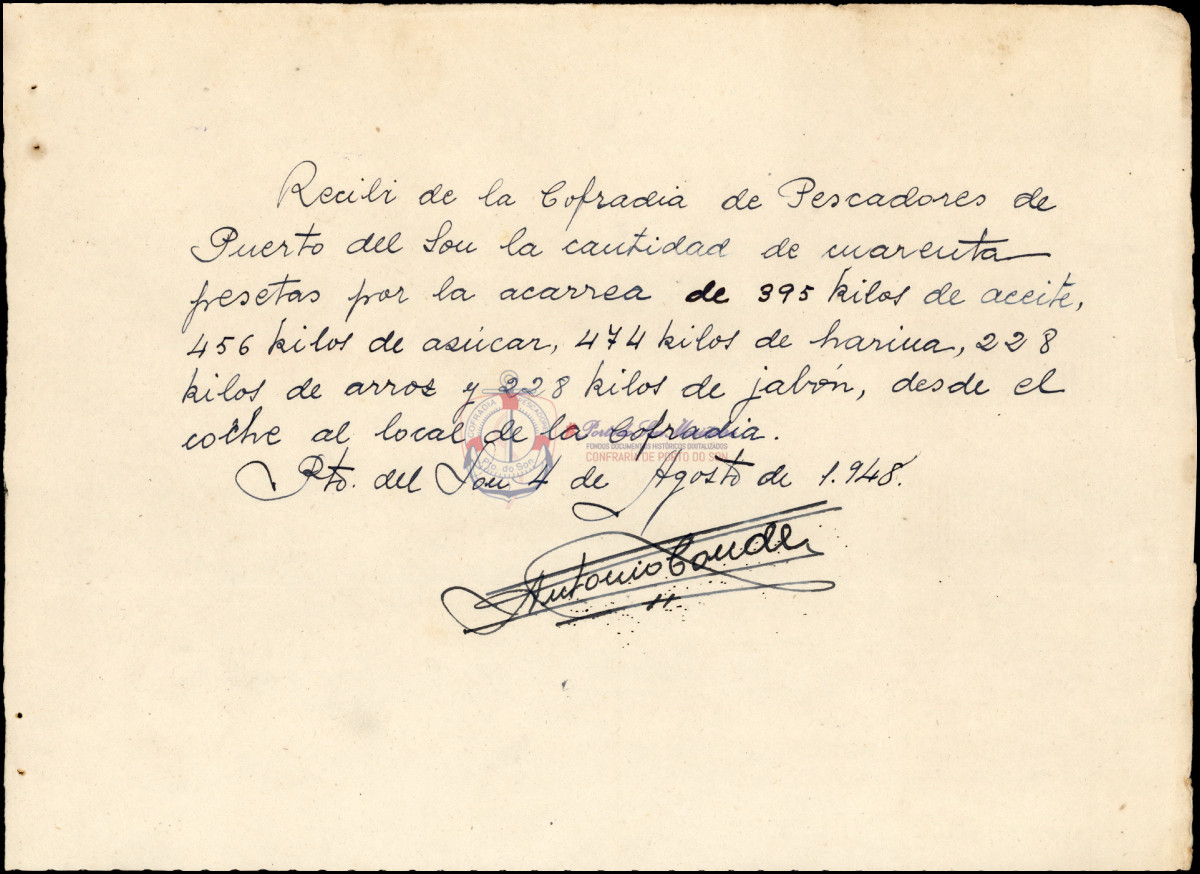 Recibi de la Cofradia de Pescadores de
Puerto del Son la cantidad de cuarenta
pesetas por la acarrea de 395 kilos de aceite,
456 kilos de asúcar, 474 kilos de harina, 228
kilos de arroz y 228 kilos de jabón, desde el
coche al local de la Cofradia.
COFRADIA PESCADORES
Pto. do Son
FONDOS DOCUMENTOS HISTÓRICOS DIGITALIZADOS
CONFRARÍA DE PORTO DO SON
Pto. del Son 4 de Agosto de 1.948.
Antonio Conde